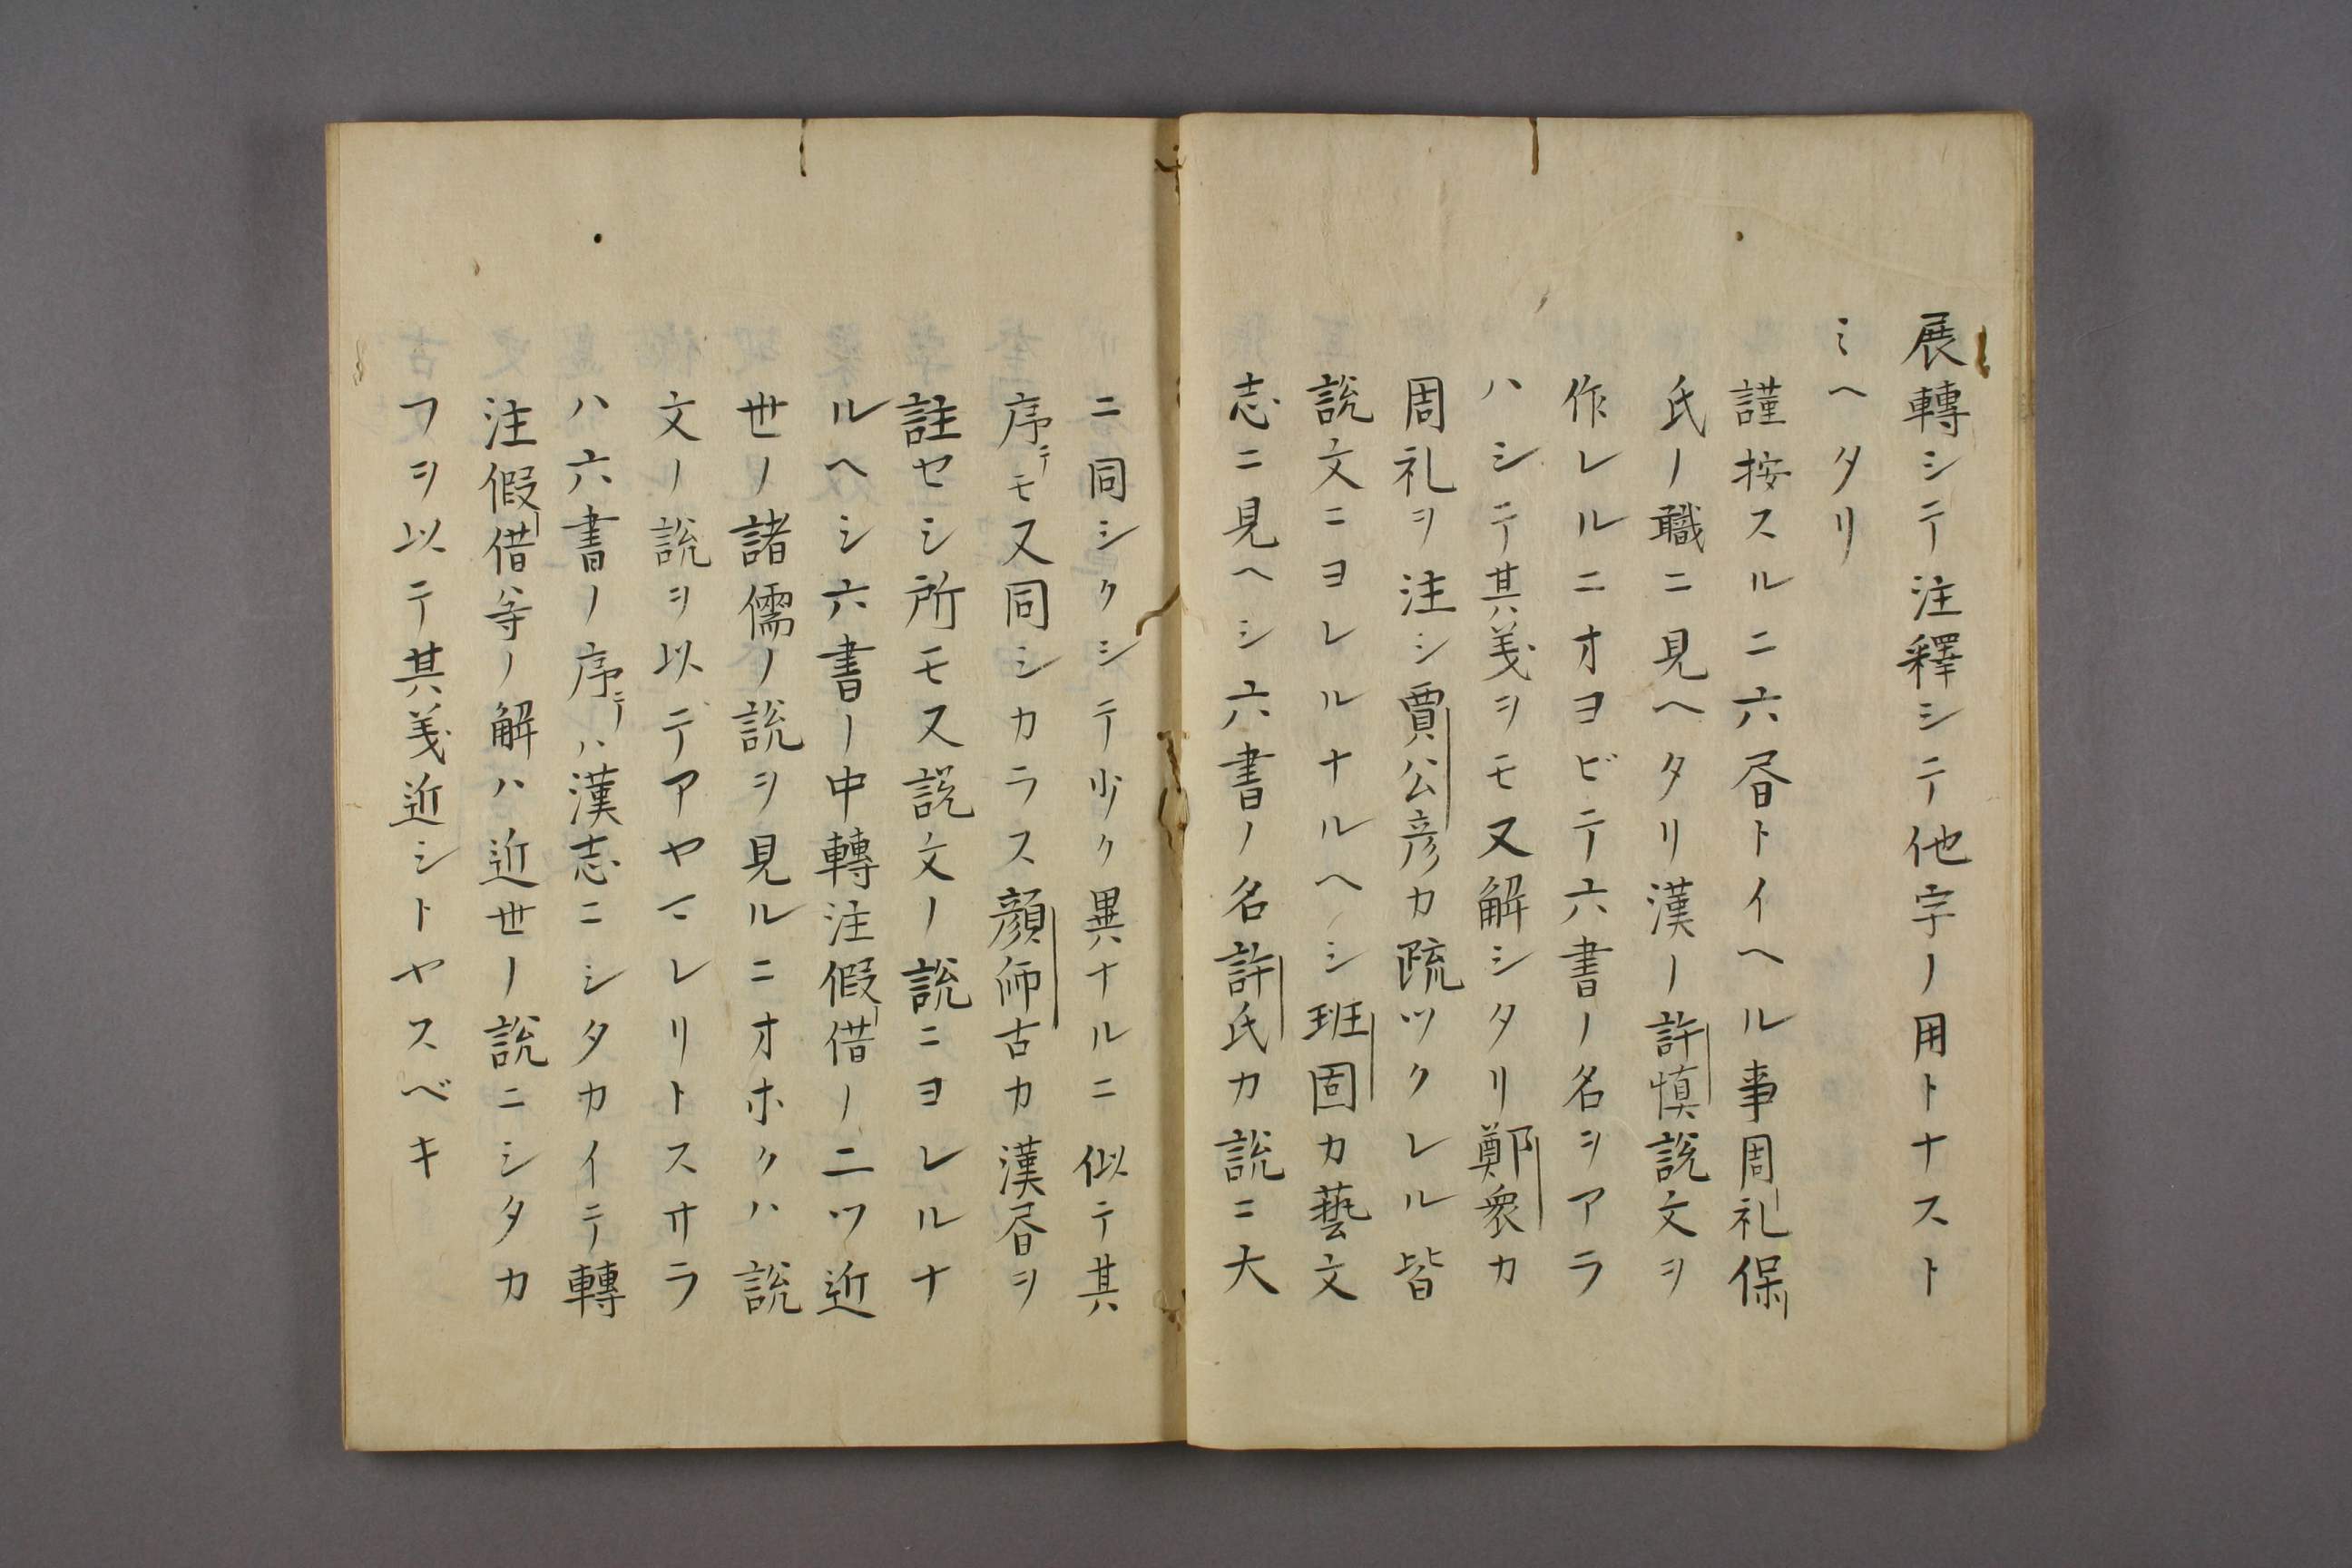 展轉シテ注釋シテ他字ノ用トナスト
ミヘタリ
謹按スルニ六昏トイヘル事周礼保
氏ノ職ニ見ヘタリ漢ノ許慎説文ヲ
作レルニオヨビテ六書ノ名ヲアラ
ハシテ其義ヲモ又解シタリ鄭衆カ
周礼ヲ注シ賈公彦カ疏ツクレル皆
説文ニヨレルナルヘシ班固カ藝文
志ニ見ヘシ六書ノ名許氏カ説ニ大
ニ同シクシテ少ク異ナルニ似テ其
序テモ又同シカラス顔師古カ漢昏ヲ
註セシ所モ又説文ノ説ニヨレルナ
ルヘシ六書ノ中轉注假借ノ二ツ近
世ノ諸儒ノ説ヲ見ルニオホクハ説
文ノ説ヲ以テアヤマレリトスサラ
ハ六書ノ序テハ漢志ニシタカイテ轉
注假借ハ等ノ解ハ近世ノ説ニシタカ
フヲ以テ其義近シトヤスベキ